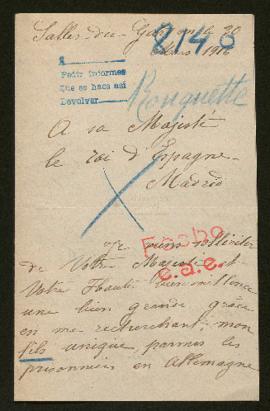 Salles-du-Gardon le 20
Mars 1916
8146
Pedir informes
Que se hace así
Devolver
Rouquette
A sa Majesté
le roi d'Espagne
Madrid
Fecho
c.a.e.
Je viens solliciter
de Votre Majesté et
Votre Haute bienveillance
une bien grande grâce
en me recherchant, mon
fils unique parmis les
prisonniers en Allemagne